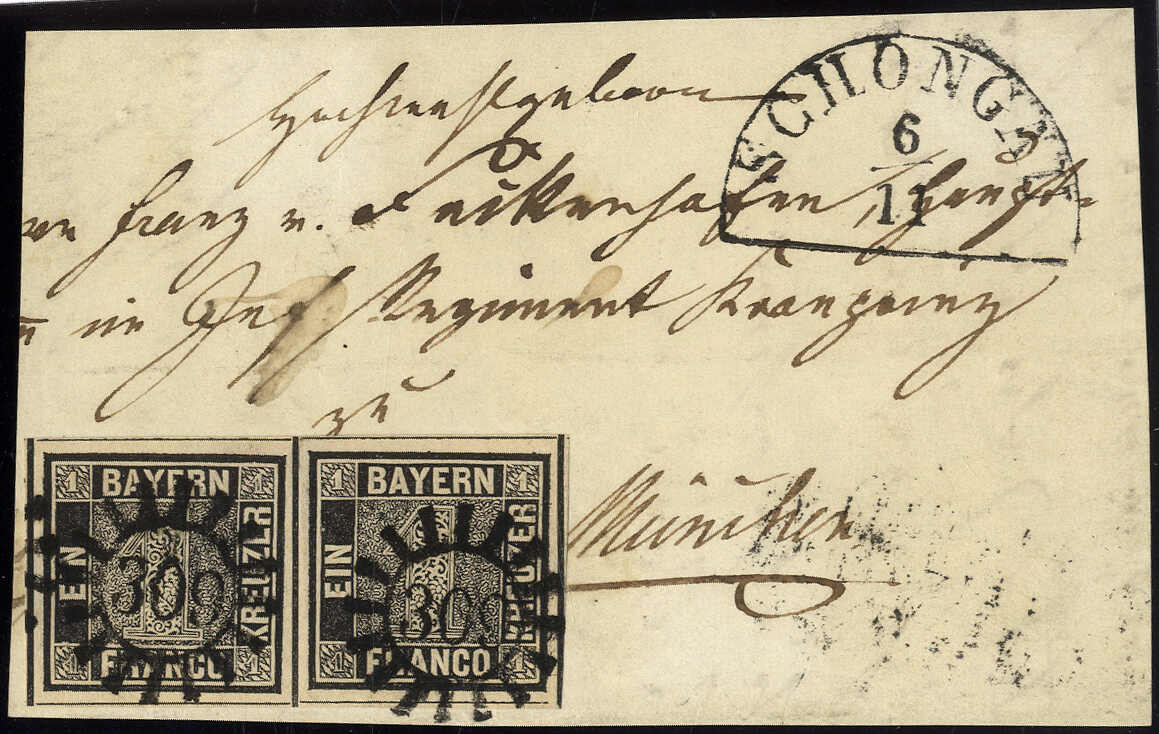 Hochwohlgeboren
SCHONGAU
6
11
Franz v.
im Inf Regiment Kronprinz
zu
München
1 BAYERN 1
EIN
KREUZER
1 FRANCO 1
309
1 BAYERN 1
EIN
KREUZER
1 FRANCO 1
309